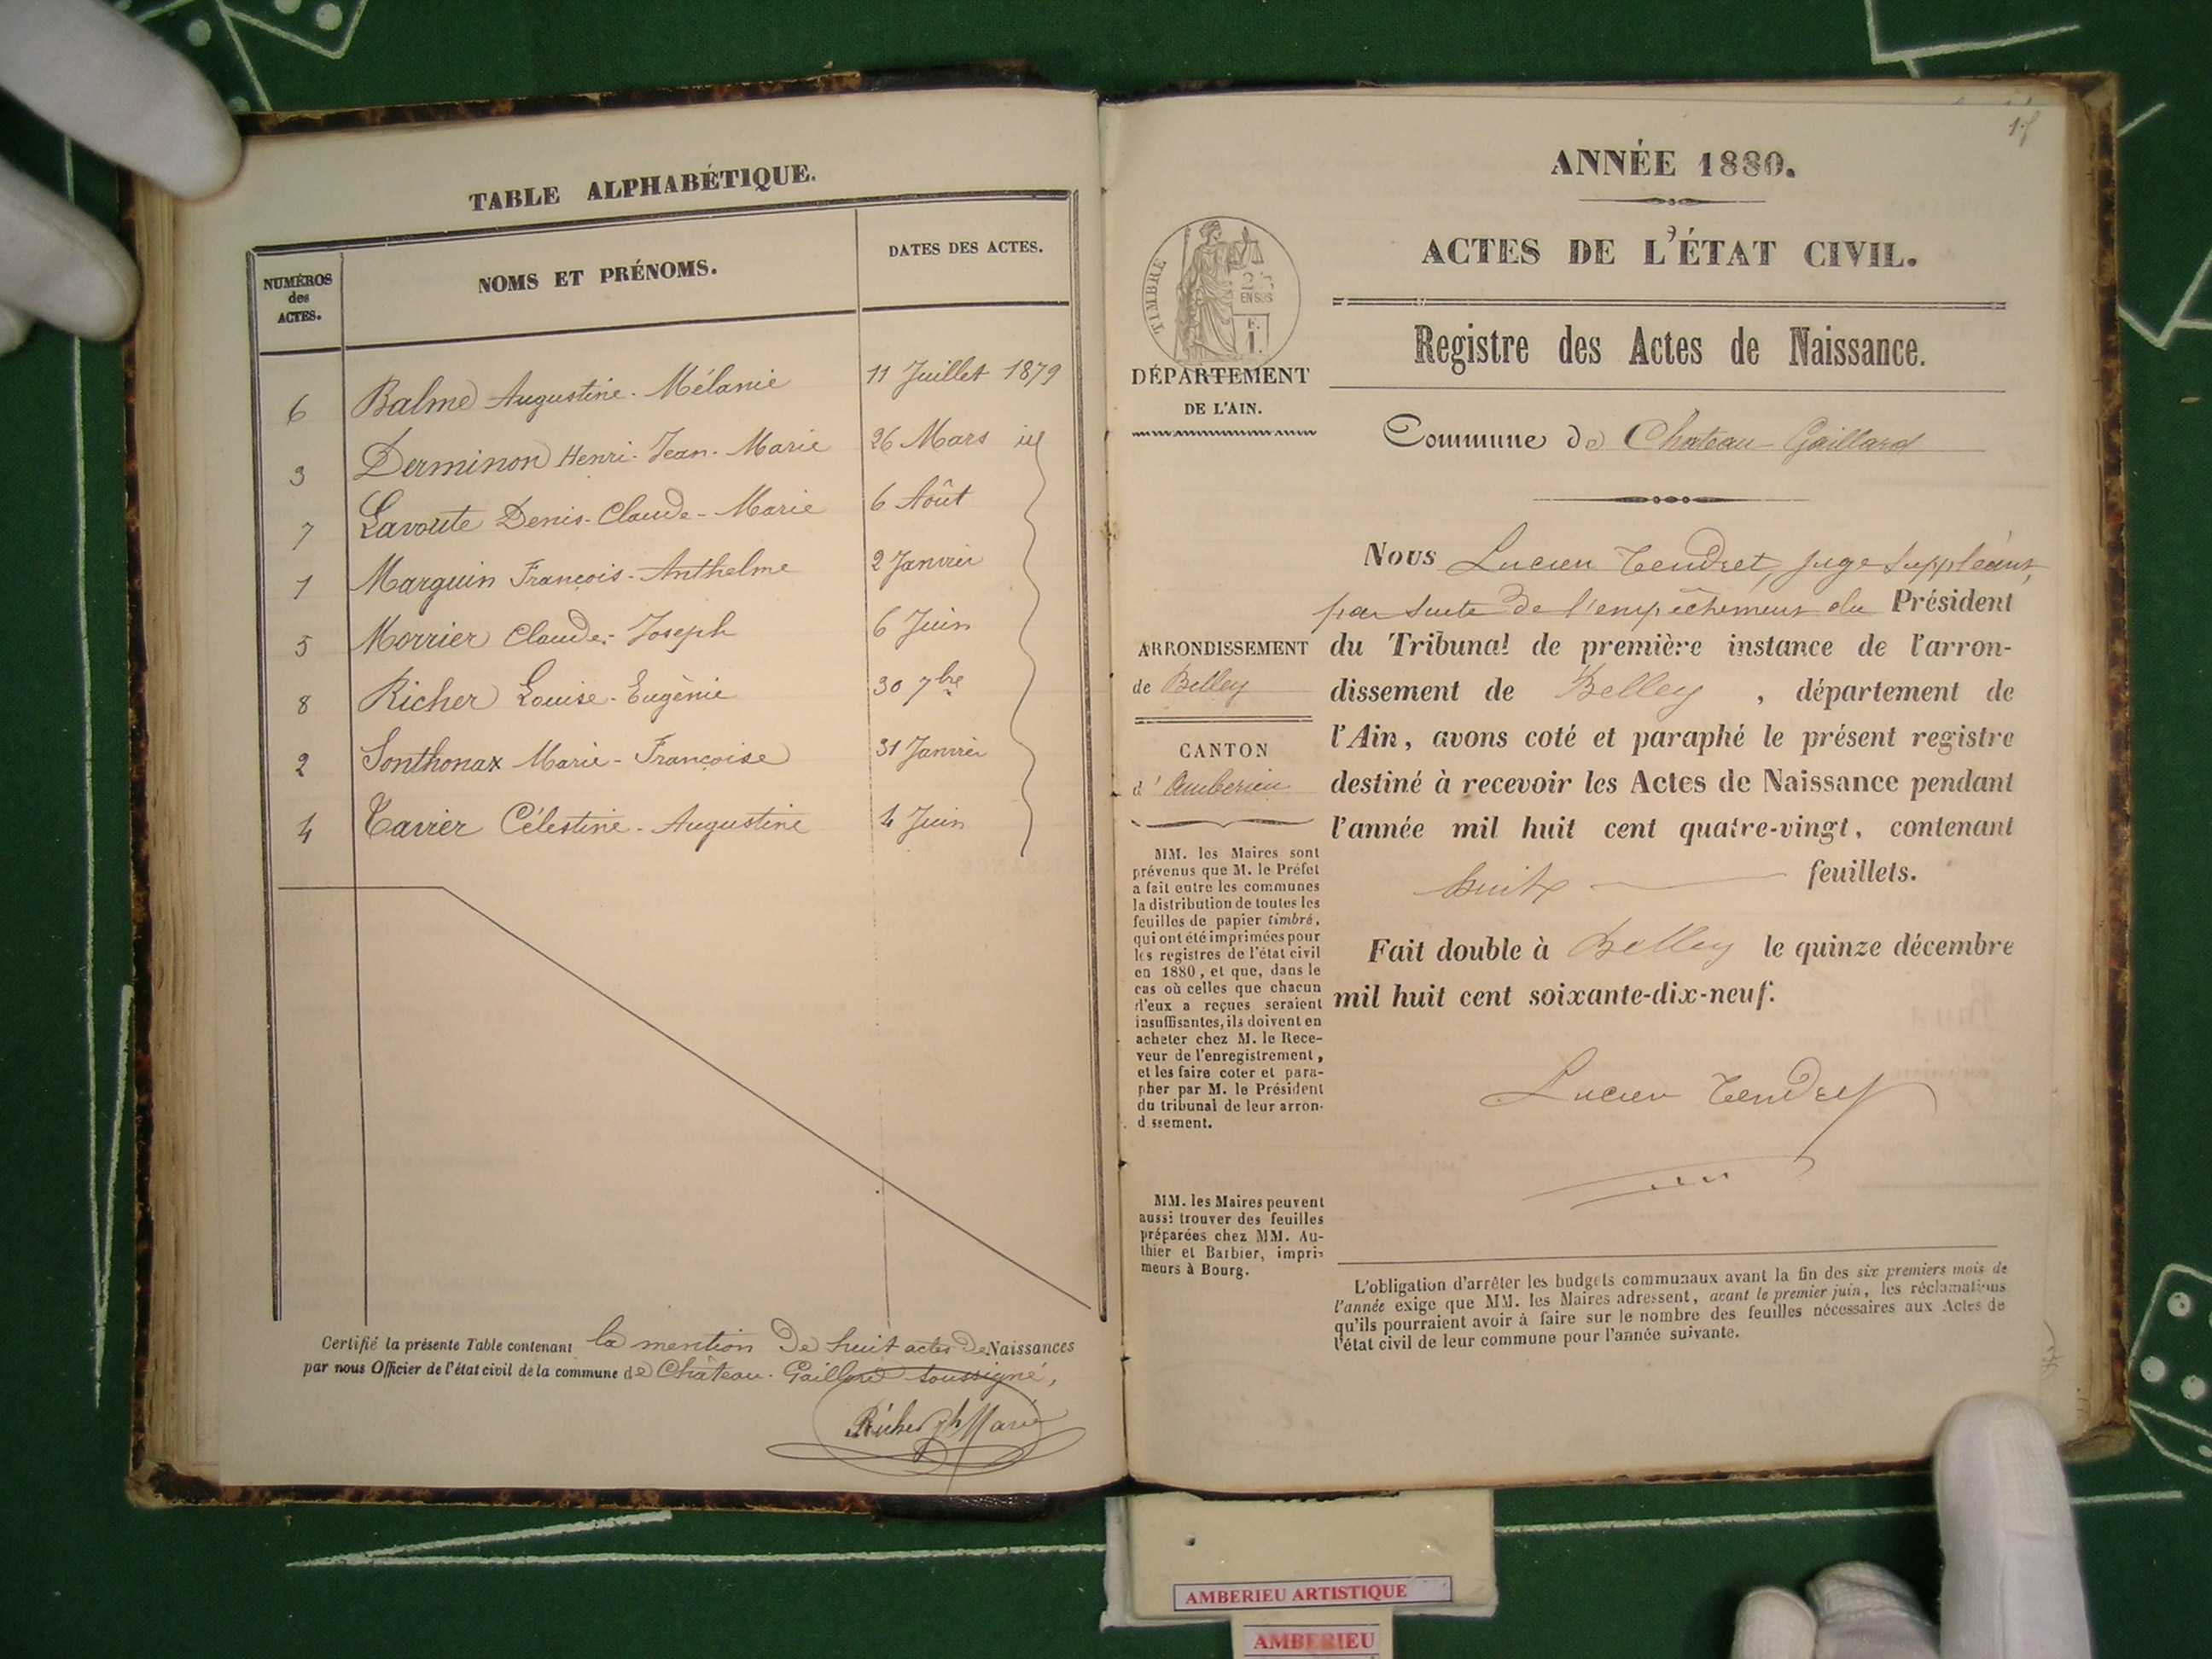 TABLE ALPHABÉTIQUE.
NUMÉROS
des
ACTES.
NOMS ET PRÉNOMS.
DATES DES ACTES.
6 Balme Augustine-Mélanie 11 Juillet 1879
3 Derminon Henri-Jean-Marie 26 Mars id
7 Lavoute Denis-Claude-Marie 6 Août
1 Marguin François-Anthelme 2 Janvier
5 Morrier Claude-Joseph 6 Juin
8 Richer Louise-Eugénie 30 7bre
2 Sonthonax Marie-Françoise 31 Janvier
4 Tavier Célestine-Augustine 4 Juin
Certifié la présente Table contenant la mention de huit actes de Naissances
par nous Officier de l'état civil de la commune de Château-Gaillard soussigné,
Richer Jh Marie
ANNÉE 1880.
ACTES DE L'ÉTAT CIVIL.
Registre des Actes de Naissance.
Commune de Chateau-Gaillard
Nous Lucien Tendret, juge suppléant,
par suite de l'empêchement du Président
du Tribunal de première instance de l'arron-
dissement de Belley, département de
l'Ain, avons coté et paraphé le présent registre
destiné à recevoir les Actes de Naissance pendant
l'année mil huit cent quatre-vingt, contenant
huit feuillets.
Fait double à Belley le quinze décembre
mil huit cent soixante-dix-neuf.
Lucien Tendret
L'obligation d'arrêter les budgets communaux avant la fin des six premiers mois de
l'année exige que MM. les Maires adressent, avant le premier juin, les réclamations
qu'ils pourraient avoir à faire sur le nombre des feuilles nécessaires aux Actes de
l'état civil de leur commune pour l'année suivante.
TIMBRE
DÉPARTEMENT
DE L'AIN.
ARRONDISSEMENT
de Belley
CANTON
d'Amberieu
MM. les Maires sont
prévenus que M. le Préfet
a fait entre les communes
la distribution de toutes les
feuilles de papier timbré,
qui ont été imprimées pour
les registres de l'état civil
en 1880, et que, dans le
cas où celles que chacun
d'eux a reçues seraient
insuffisantes, ils doivent en
acheter chez M. le Rece-
veur de l'enregistrement,
et les faire coter et para-
pher par M. le Président
du tribunal de leur arron-
dissement.
MM. les Maires peuvent
aussi trouver des feuilles
préparées chez MM. Au-
thier et Barbier, impri-
meurs à Bourg.
AMBERIEU ARTISTIQUE
AMBERIEU